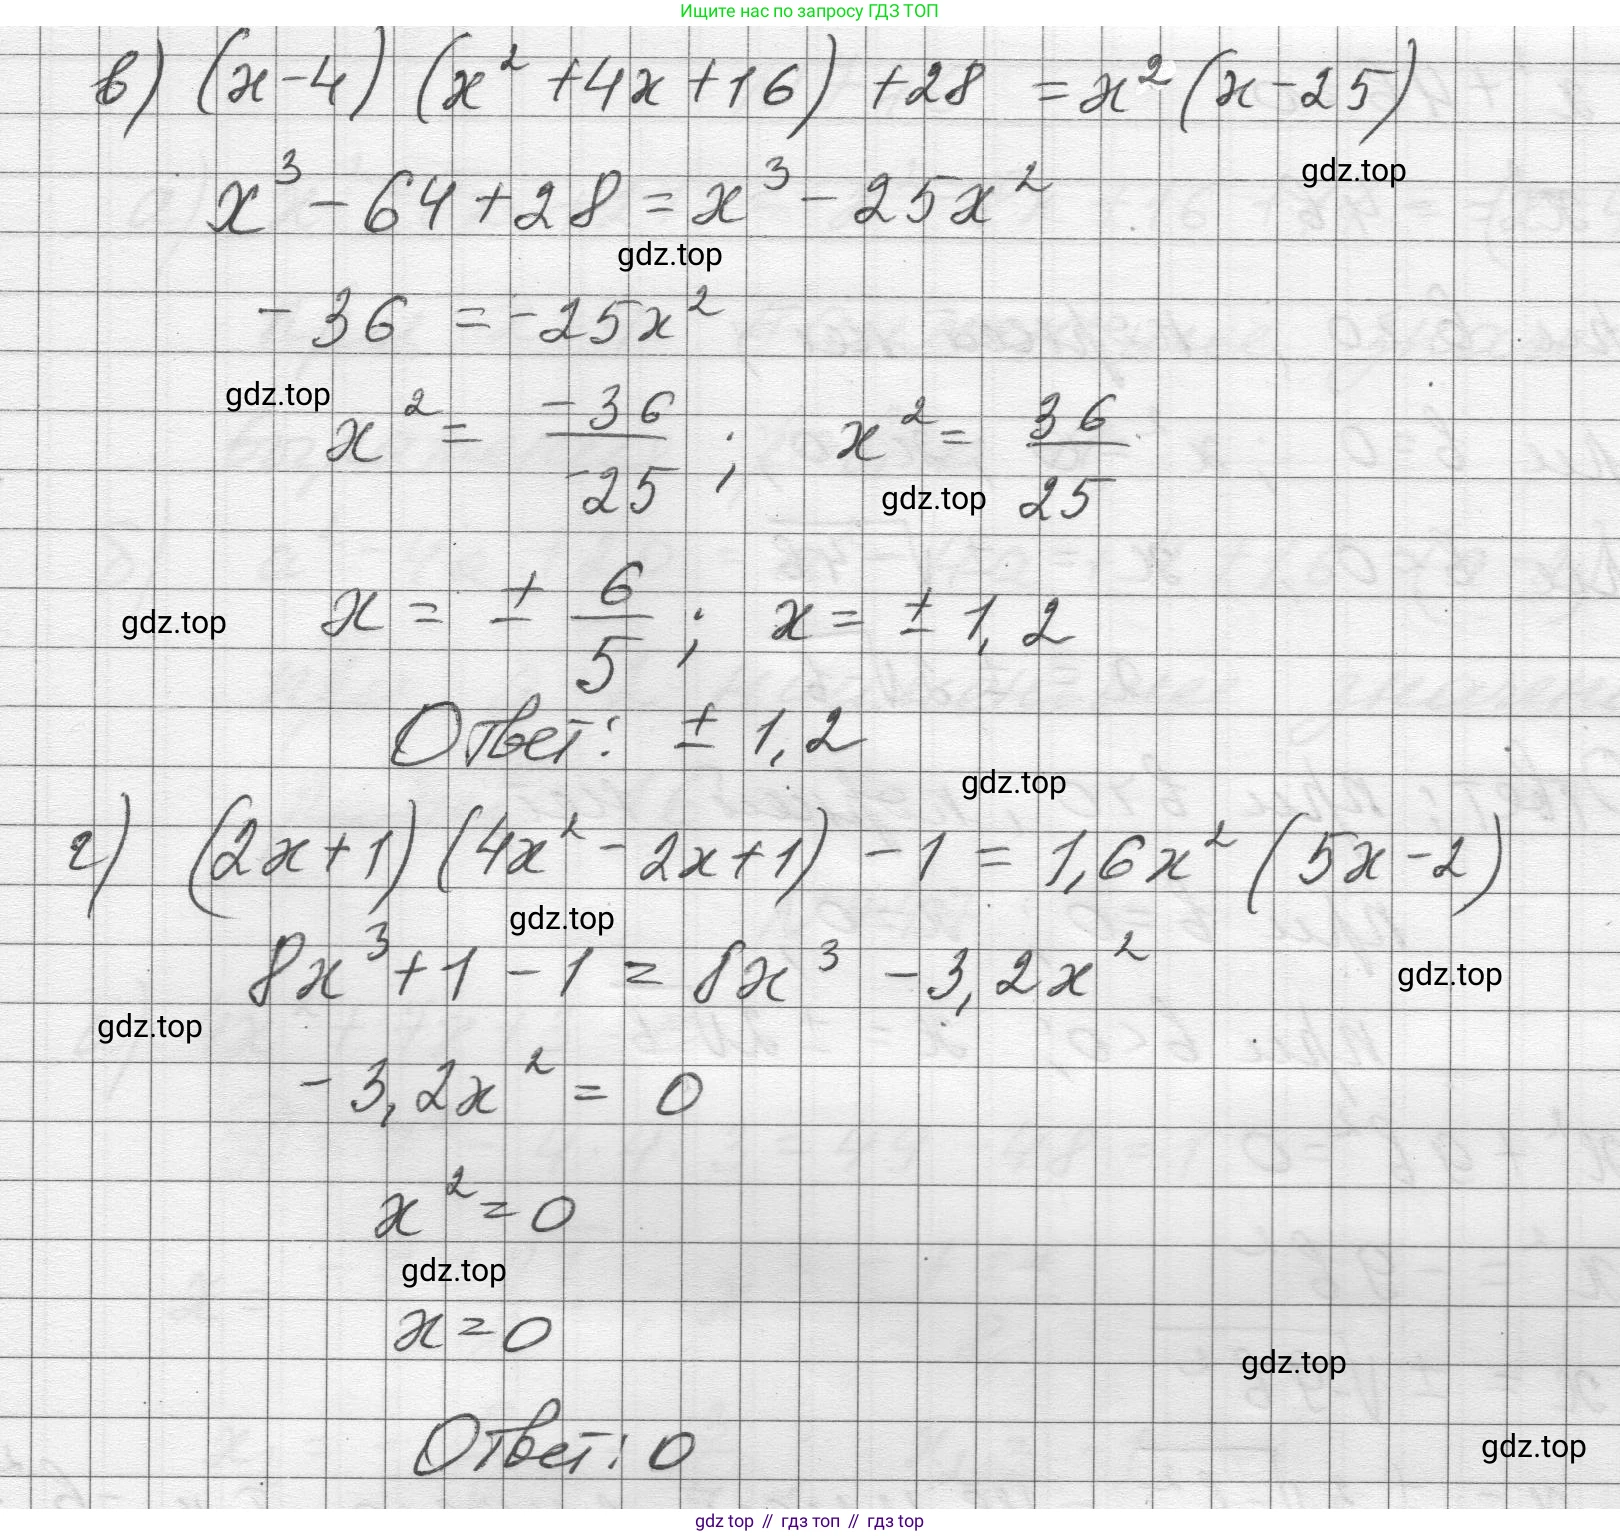 Ищите нас по запросу ГДЗ ТОП
в) (x-4) (x² +4x+16) +28 = x² (x-25)
gdz.top
x³ - 64 + 28 = x³ - 25x²
gdz.top
- 36 = -25x²
gdz.top
x² = -36/-25 ; x² = 36/25
gdz.top
gdz.top
x = ± 6/5 ; x = ± 1,2
Ответ: ± 1,2
gdz.top
г) (2x+1) (4x² - 2x+1) - 1 = 1,6x² (5x-2)
gdz.top
8x³ + 1 - 1 = 8x³ - 3,2x²
gdz.top
gdz.top
- 3,2x² = 0
x² = 0
gdz.top
x = 0
gdz.top
Ответ: 0
gdz.top
gdz top // гдз топ // гдз top